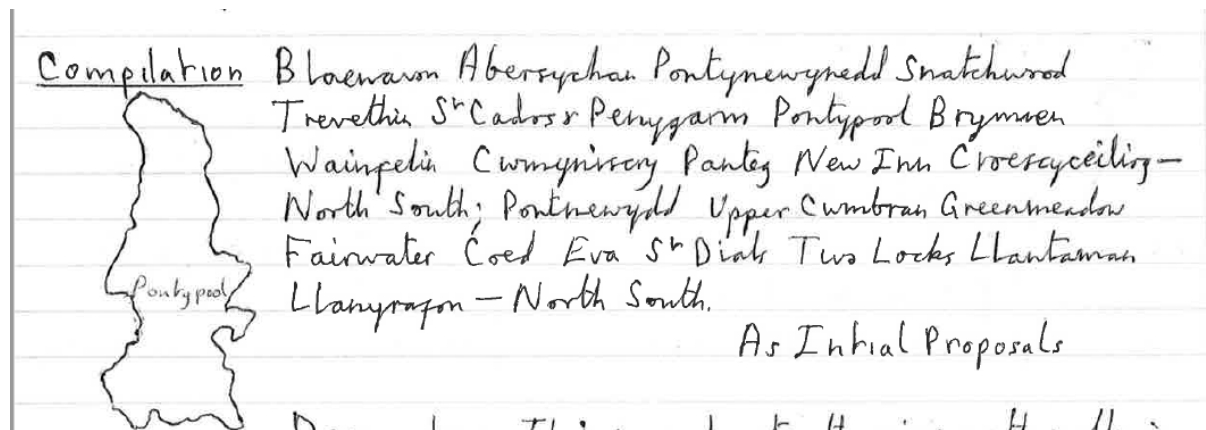 Compilation Blaenavon Abersychan Pontynewynedd Snatchwood
Trevethin St Cadocs & Penygarn Pontypool Brynwen
Wainfelin Cwmyniscoy Panteg New Inn Croesyceiliog –
North South; Pontnewydd Upper Cwmbran Greenmeadow
Fairwater Coed Eva St Dials Two Locks Llantarnam
Pontypool
Llanyrafon – North South.
As Initial Proposals